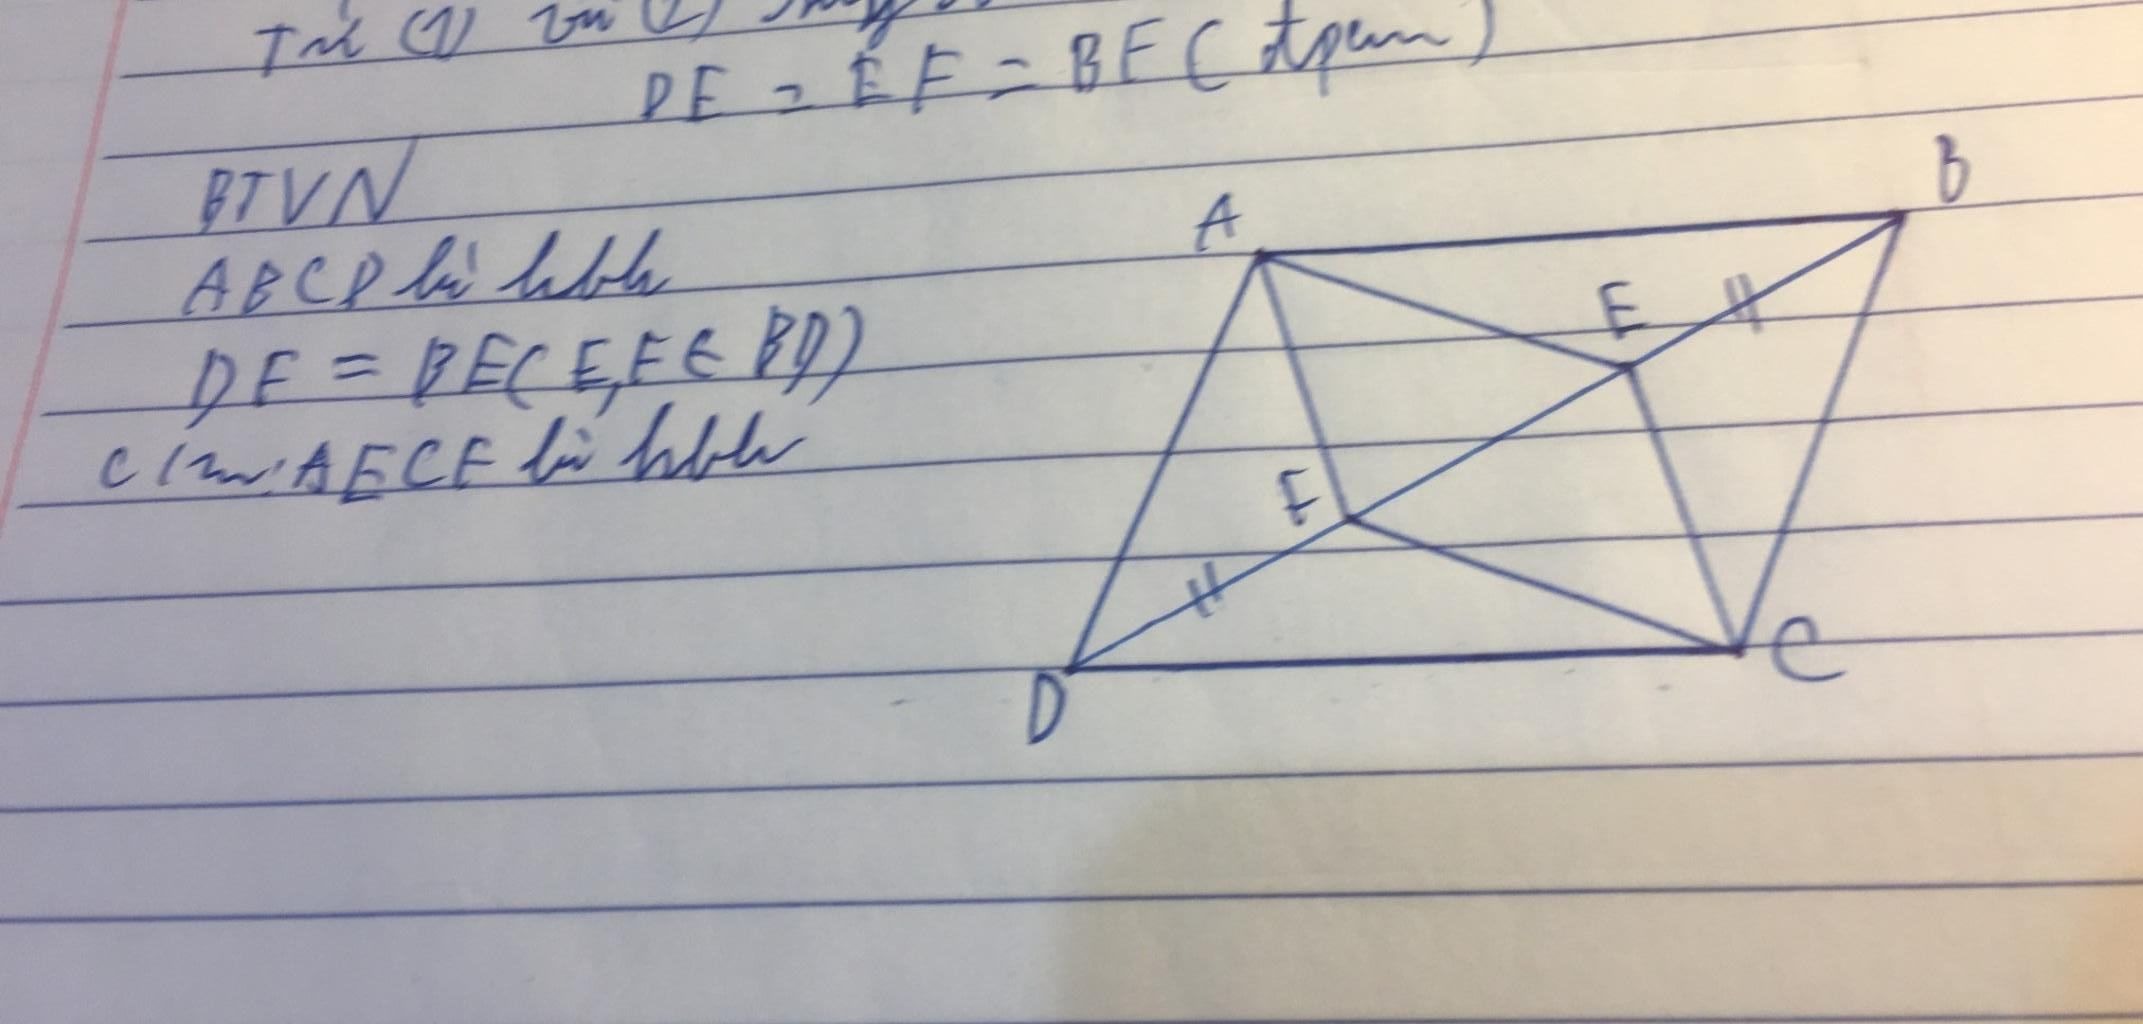 Từ (1) và (2)
DE = EF = BF (đpcm)
BTVN
ABCD là hbh
DF = BE( E,F ∈ BD)
C/m: AECF là hbh
A
B
E
F
D
C